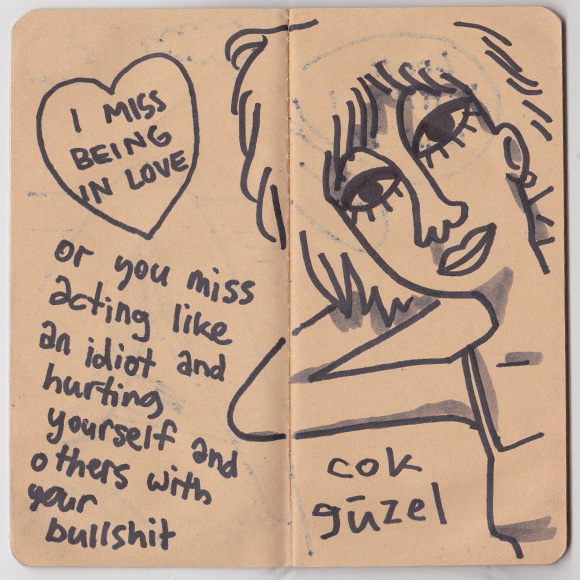 I MISS
BEING
IN LOVE
or you miss
acting like
an idiot and
hurting
yourself and
others with
your
bullshit
cok
gūzel